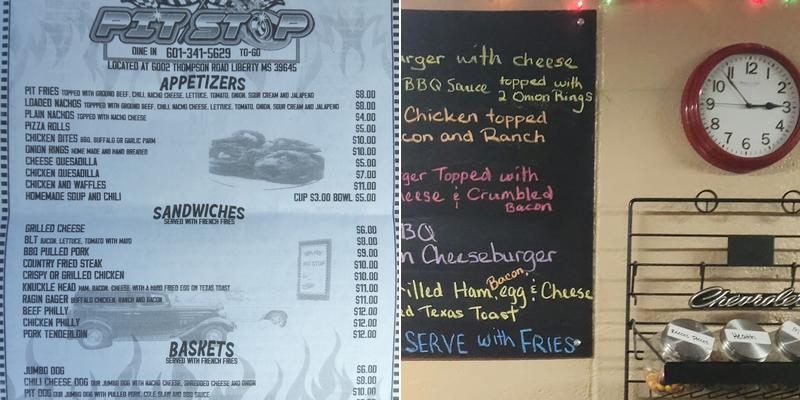 PIT STOP
DINE IN 601-341-5629 TO-GO
LOCATED AT 6002 THOMPSON ROAD LIBERTY MS 39645
APPETIZERS
PIT FRIES TOPPED WITH GROUND BEEF, CHILI, NACHO CHEESE, LETTUCE, TOMATO, ONION, SOUR CREAM AND JALAPENO $8.00
LOADED NACHOS TOPPPED WITH GROUND BEEF, CHILI, NACHO CHEESE, LETTUCE, TOMATO, ONION, SOUR CREAM AND JALAPENO $8.00
PLAIN NACHOS TOPPED WITH NACHO CHEESE $4.00
PIZZA ROLLS $5.00
CHICKEN BITES BBQ, BUFFALO OR GARLIC PARM $10.00
ONION RINGS HOME MADE AND HAND BREADED $10.00
CHEESE QUESADILLA $5.00
CHICKEN QUESADILLA $7.00
CHICKEN AND WAFFLES $11.00
HOMEMADE SOUP AND CHILI CUP $3.00 BOWL $5.00
SANDWICHES
SERVED WITH FRENCH FRIES
GRILLED CHEESE $6.00
BLT BACON, LETTUCE, TOMATO WITH MAYO $8.00
BBQ PULLED PORK $9.00
COUNTRY FRIED STEAK $10.00
CRISPY OR GRILLED CHICKEN $10.00
KNUCKLE HEAD HAM, BACON, CHEESE WITH A FRIED EGG ON TEXAS TOAST $11.00
RAGIN GAGER BUFFALO CHICKEN, RANCH AND BACON $11.00
BEEF PHILLY $12.00
CHICKEN PHILLY $12.00
PORK TENDERLOIN $12.00
BASKETS
SERVED WITH FRENCH FRIES
JUMBO DOG $6.00
CHILI CHEESE DOG OUR JUMBO DOG WITH NACHO CHEESE, SHREDDED CHEESE AND ONION $8.00
PIT DOG OUR JUMBO DOG WITH PULLED PORK, COLE SLAW AND BBQ SAUCE $10.00
urger with cheese
BBQ Sauce topped with
2 Onion Rings
Chicken topped
con and Ranch
ger Topped with
eese & Crumbled
Bacon
BQ
n Cheeseburger
Bacon,
rilled Ham, egg & Cheese
ed Texas Toast
SERVE with FRIES
12
1
2
3
4
5
6
7
8
9
10
11
Chevrolet